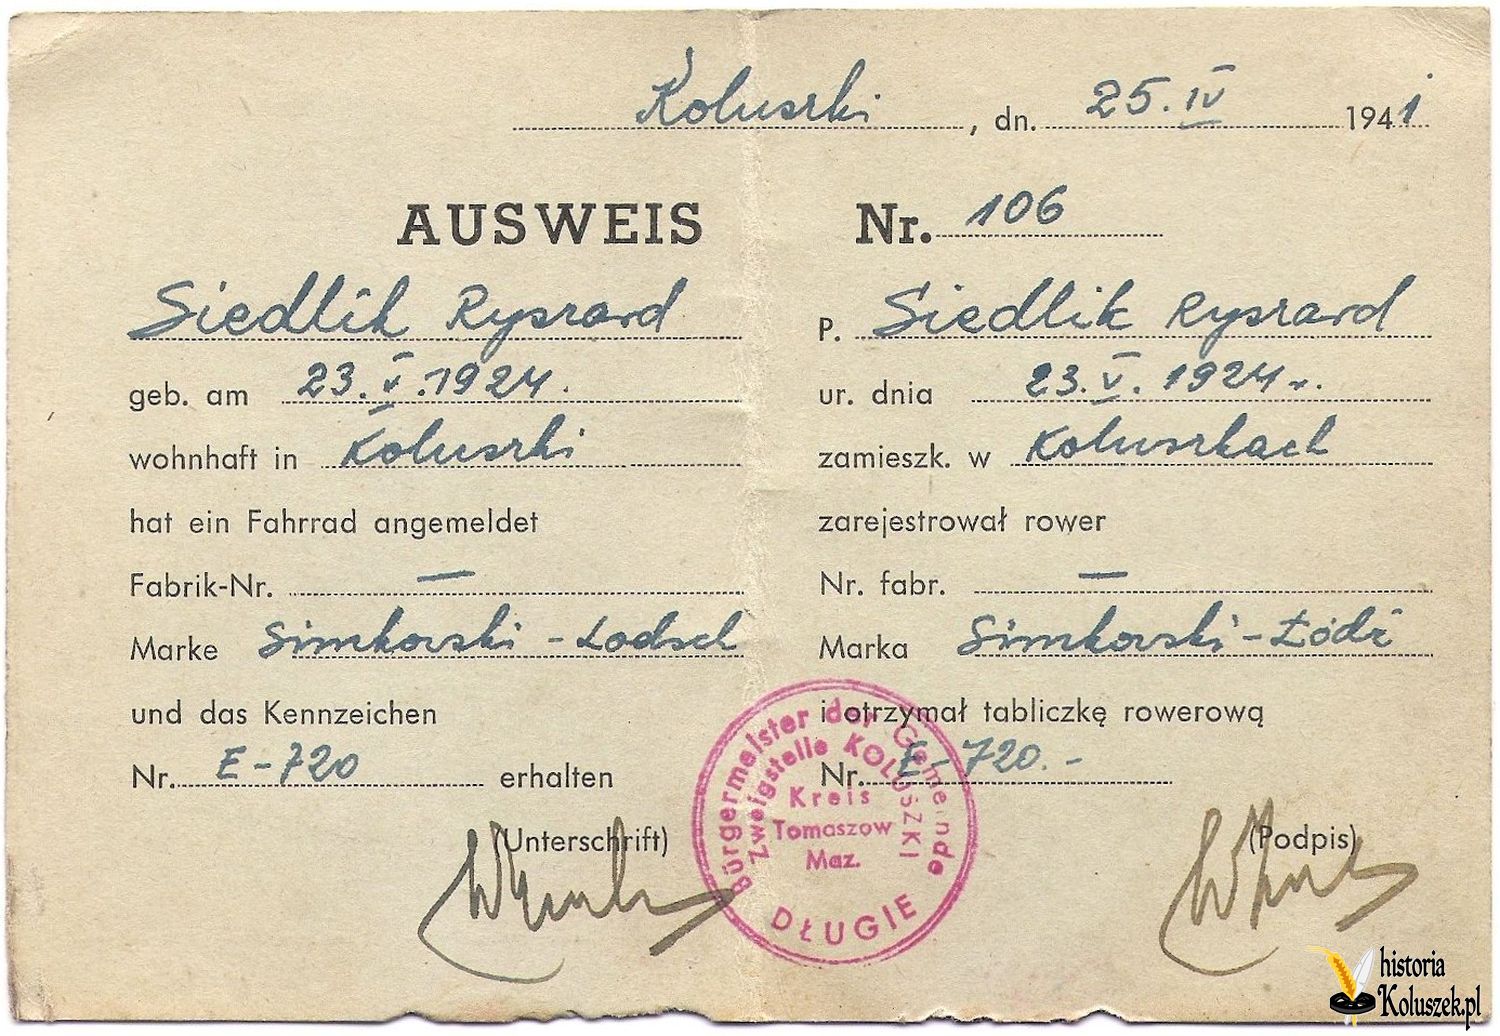 Koluszki, dn. 25. IV 1941
AUSWEIS Nr. 106
Siedlik Ryszard
geb. am 23. V. 1924.
wohnhaft in Koluszki
hat ein Fahrrad angemeldet
Fabrik-Nr. —
Marke Simkovski - Lodsch
und das Kennzeichen
Nr. E-720 erhalten
(Unterschrift)
P. Siedlik Ryszard
ur. dnia 23. V. 1924 r.
zamieszk. w Koluszkach
zarejestrował rower
Nr. fabr. —
Marka Simkovski - Łódź
i otrzymał tabliczkę rowerową
Nr. E-720.-
(Podpis)
Bürgermeister der Gemeinde
DŁUGIE
Zweigstelle KOLUSZKI
Kreis
Tomaszow
Maz.
historia
Koluszek.pl